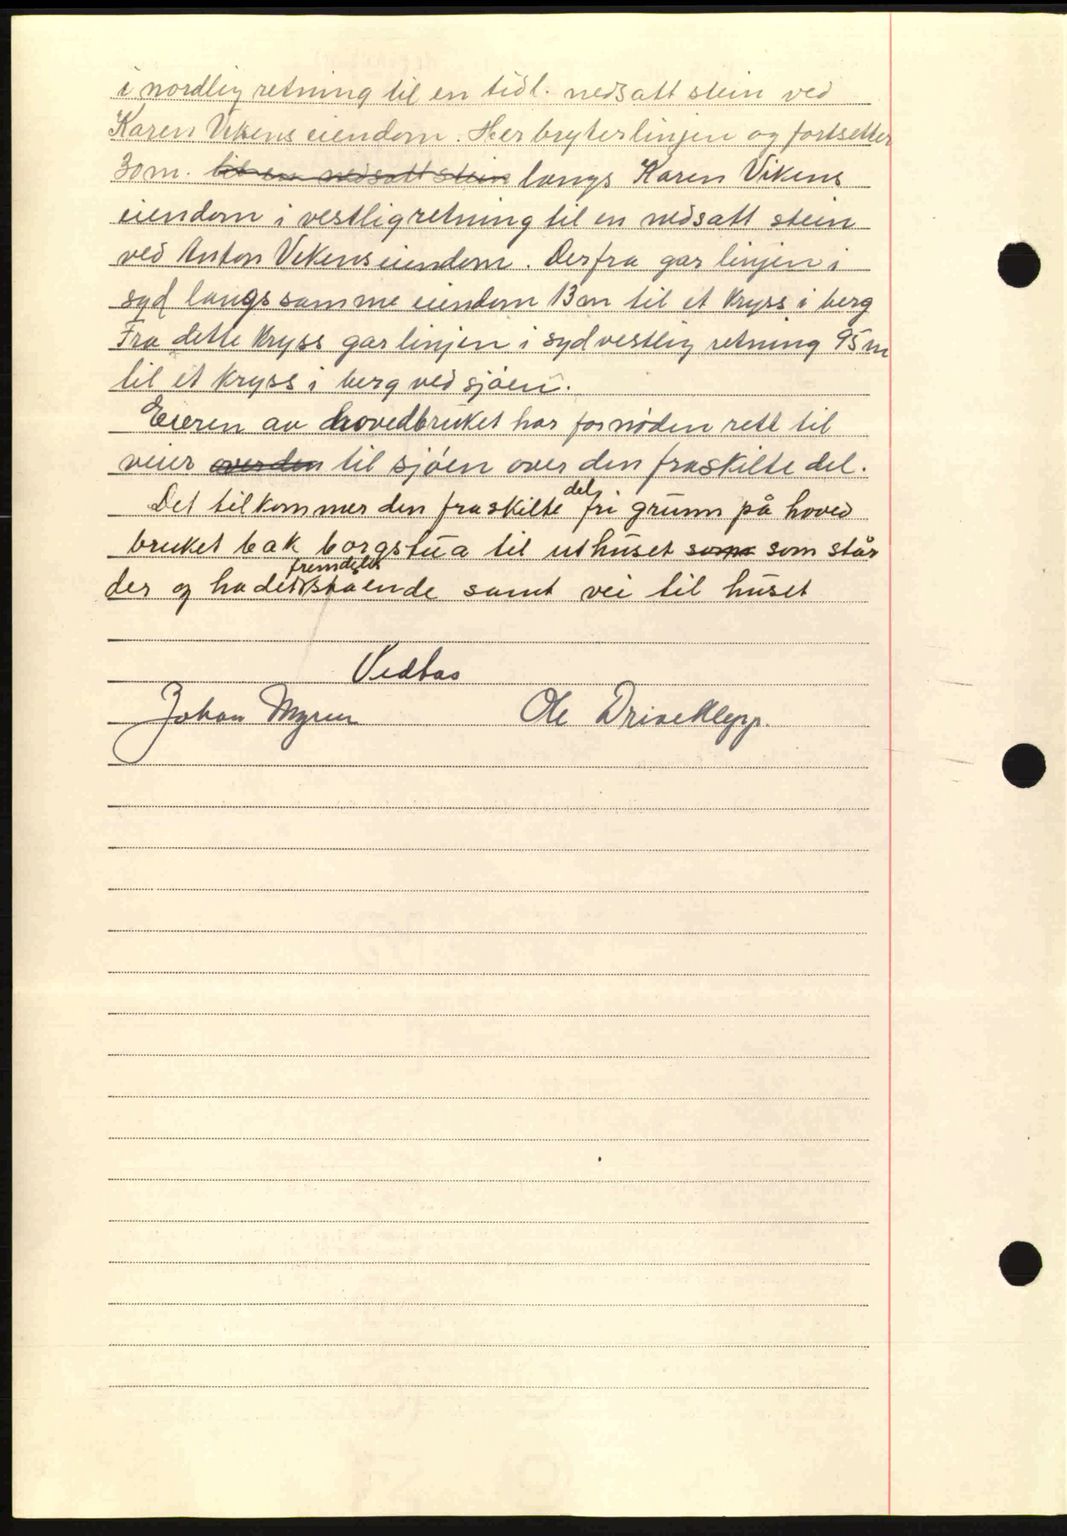 i nordlig retning til en tidl. nedsatt stein ved
Karen Vikens eiendom. Her bryter linjen og fortsetter
30 m. til en nedsatt stein langs Karen Vikens
eiendom i vestlig retning til en nedsatt stein
ved Anton Vikens eiendom. Derfra går linjen i
syd langs samme eiendom 13 m til et kryss i berg
Fra dette kryss går linjen i sydvestlig retning 95 m
til et kryss i berg ved sjøen.
Eieren av hovedbruket har fornøden rett til
veier over den til sjøen over den fraskilte del.
Det tilkommer den fraskilte del fri grunn på hoved
bruket bak borgstua til uthuset som som står
der og ha det fremdeles stående samt vei til huset
Johan Myren Ole Driveklepp.